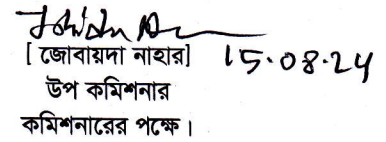 [ জোবায়দা নাহার] 15.08.24
উপ কমিশনার
কমিশনারের পক্ষে।